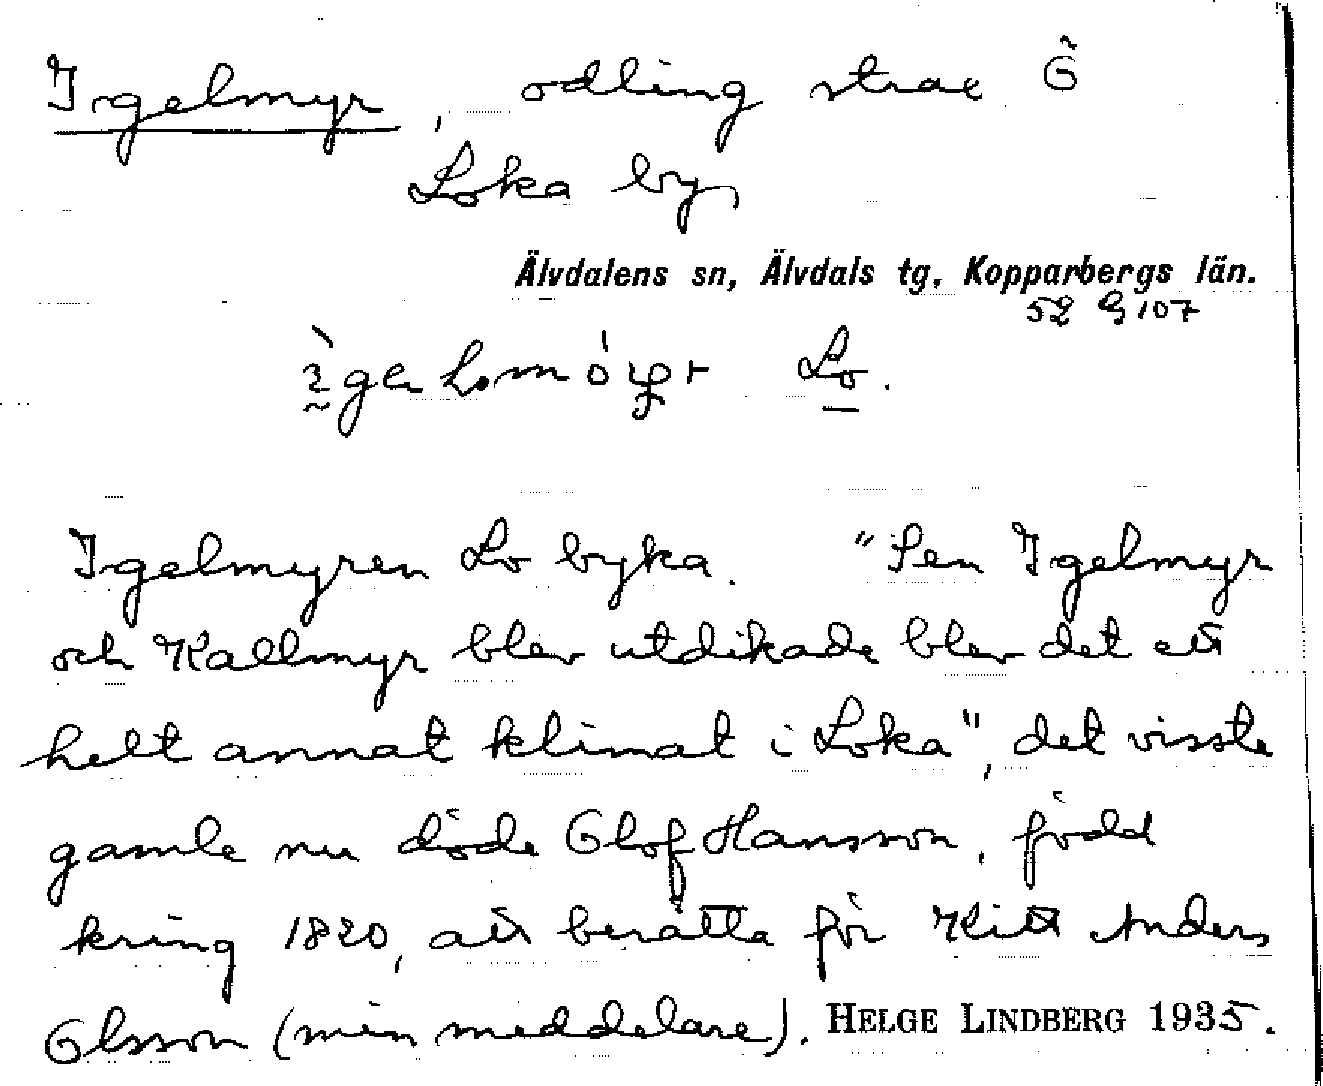 Igelmyr, odling strax Ö
Loka by,
Älvdalens sn, Älvdals tg, Kopparbergs län.
52 G 107
Lo.
Igelmyren Lo byka. "Sen Igelmyr
och Kallmyr blev utdikade blev det ett
helt annat klimat i Loka", det visste
gamle nu döde Olof Hansson, född
kring 1820, att berätta för Kitt Anders
Olsson (min meddelare). HELGE LINDBERG 1935.